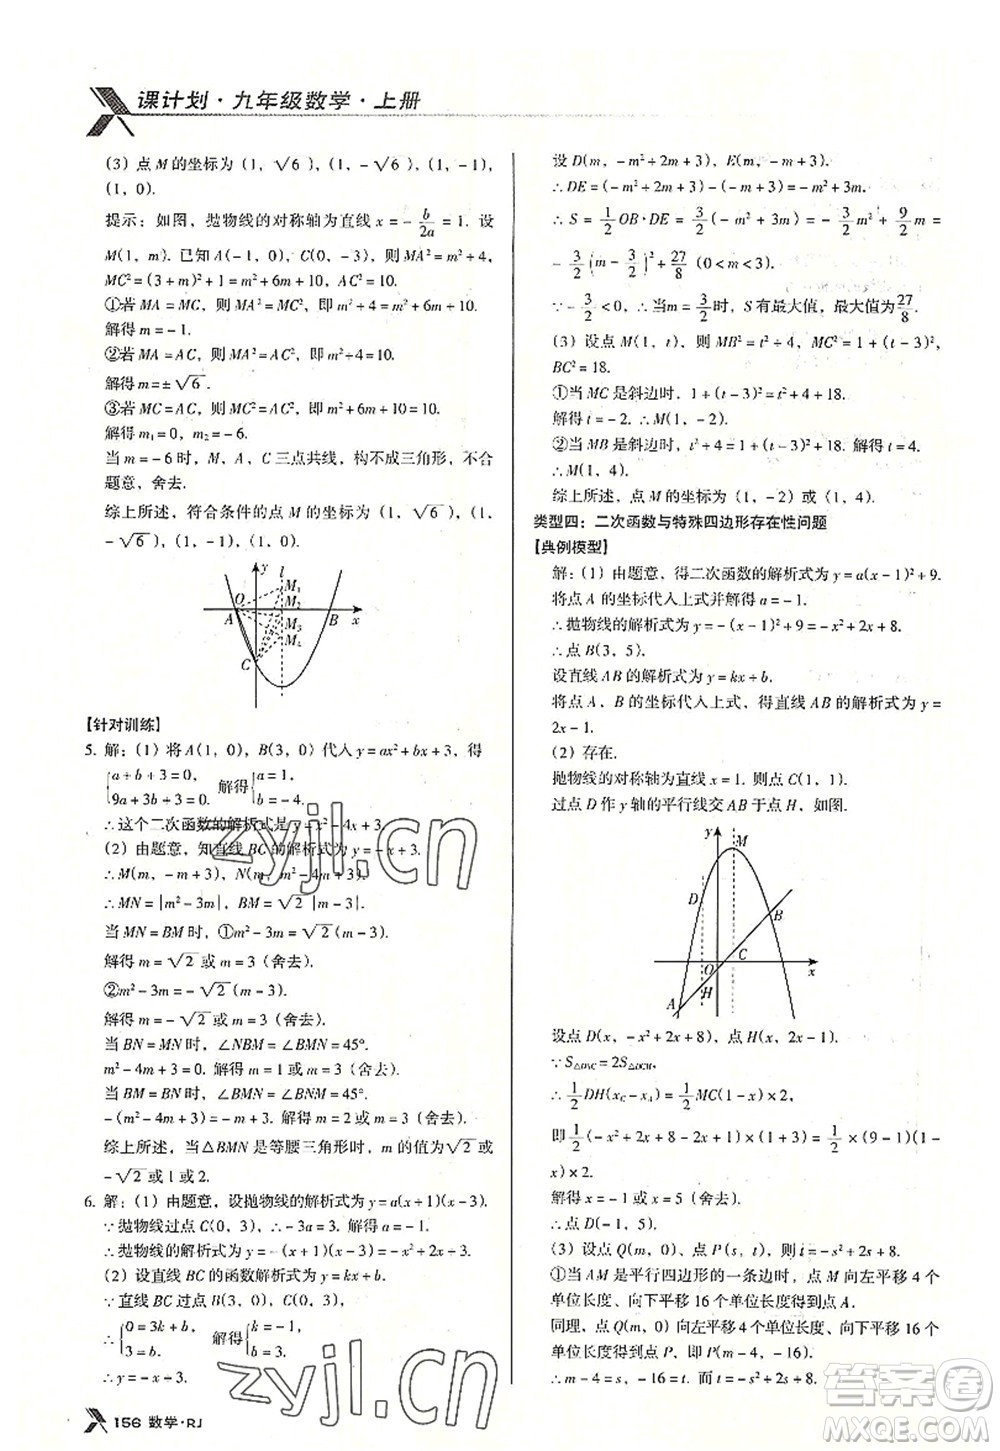 课计划·九年级数学·上册
(3) 点 M 的坐标为 (1, √6), (1, -√6), (1, -1),
(1, 0).
提示：如图，抛物线的对称轴为直线 x = -b/2a = 1. 设
M(1, m). 已知 A(-1, 0)、C(0, -3)，则 MA² = m² + 4,
MC² = (3 + m)² + 1 = m² + 6m + 10, AC² = 10.
①若 MA = MC，则 MA² = MC²，即 m² + 4 = m² + 6m + 10.
解得 m = -1.
②若 MA = AC，则 MA² = AC²，即 m² + 4 = 10.
解得 m = ±√6.
③若 MC = AC，则 MC² = AC²，即 m² + 6m + 10 = 10.
解得 m₁ = 0, m₂ = -6.
当 m = -6 时，M、A、C 三点共线，构不成三角形，不合
题意，舍去.
综上所述，符合条件的点 M 的坐标为 (1, √6), (1,
-√6), (1, -1), (1, 0).
y l
M₁
O M₂
A M₃ B x
M₄
C
【针对训练】
5. 解：(1) 将 A(1, 0), B(3, 0) 代入 y = ax² + bx + 3，得
{a + b + 3 = 0, 9a + 3b + 3 = 0. 解得 {a = 1, b = -4.
∴这个二次函数的解析式是 y = x² - 4x + 3.
(2) 由题意，知直线 BC 的解析式为 y = -x + 3.
∴ M(m, -m + 3), N(m, m² - 4m + 3).
∴ MN = |m² - 3m|, BM = √2 |m - 3|.
当 MN = BM 时，①m² - 3m = √2 (m - 3).
解得 m = √2 或 m = 3 (舍去).
②m² - 3m = -√2 (m - 3).
解得 m = -√2 或 m = 3 (舍去).
当 BN = MN 时，∠NBM = ∠BMN = 45°.
m² - 4m + 3 = 0. 解得 m = 1 或 m = 3 (舍去).
当 BM = BN 时，∠BMN = ∠BNM = 45°.
-(m² - 4m + 3) = -m + 3. 解得 m = 2 或 m = 3 (舍去).
综上所述，当 △BMN 是等腰三角形时，m 的值为 √2 或
-√2 或 1 或 2.
6. 解：(1) 由题意，设抛物线的解析式为 y = a(x + 1)(x - 3).
∵ 抛物线过点 C(0, 3)，∴ -3a = 3. 解得 a = -1.
∴ 抛物线的解析式为 y = -x² + 2x + 3.
(2) 设直线 BC 的函数解析式为 y = kx + b.
∵ 直线 BC 过点 B(3, 0), C(0, 3),
∴ {0 = 3k + b, 3 = b. 解得 {k = -1, b = 3.
∴ y = -x + 3.
设 D(m, -m² + 2m + 3), E(m, -m + 3).
∴ DE = (-m² + 2m + 3) - (-m + 3) = -m² + 3m.
∴ S = 1/2 OB·DE = 3/2 (-m² + 3m) = -3/2 m² + 9/2 m =
-3/2 (m - 3/2)² + 27/8 (0 < m < 3).
∵ -3/2 < 0, ∴ 当 m = 3/2 时，S 有最大值，最大值为 27/8.
(3) 设点 M(1, t)，则 MB² = t² + 4, MC² = 1 + (t - 3)²,
BC² = 18.
①当 MC 是斜边时，1 + (t - 3)² = t² + 4 + 18.
解得 t = -2. ∴ M(1, -2).
②当 MB 是斜边时，t² + 4 = 1 + (t - 3)² + 18. 解得 t = 4.
∴ M(1, 4).
综上所述，点 M 的坐标为 (1, -2) 或 (1, 4).
类型四：二次函数与特殊四边形存在性问题
【典例模型】
解：(1) 由题意，得二次函数的解析式为 y = a(x - 1)² + 9.
将点 A 的坐标代入上式并解得 a = -1.
∴ 抛物线的解析式为 y = -(x - 1)² + 9 = -x² + 2x + 8.
∴ 点 B(3, 5).
设直线 AB 的解析式为 y = kx + b.
将点 A、B 的坐标代入上式，得直线 AB 的解析式为 y =
2x - 1.
(2) 存在.
抛物线的对称轴为直线 x = 1. 则点 C(1, 1).
过点 D 作 y 轴的平行线交 AB 于点 H，如图.
y M
D B
C
O x
H
A
设点 D(x, -x² + 2x + 8)，点 H(x, 2x - 1).
∵ S△DAC = 2S△DCM,
∴ 1/2 DH(x_C - x_A) = 1/2 MC(1 - x) × 2,
即 1/2 (-x² + 2x + 8 - 2x + 1)(1 + 3) = 1/2 × (9 - 1)(1 -
x) × 2.
解得 x = -1 或 x = 5 (舍去).
∴ 点 D(-1, 5).
(3) 设点 Q(m, 0)，点 P(s, t)，t = -s² + 2s + 8.
①当 AM 是平行四边形的一条边时，点 M 向左平移 4 个
单位长度、向下平移 16 个单位长度得到点 A.
同理，点 Q(m, 0) 向左平移 4 个单位长度、向下平移 16 个
单位长度得到点 P，即 P(m - 4, -16).
∴ m - 4 = s, -16 = t. 而 t = -s² + 2s + 8,
156 数学·RJ
zyjl.cn
zyjl.cn
答案圈
MXQE.COM